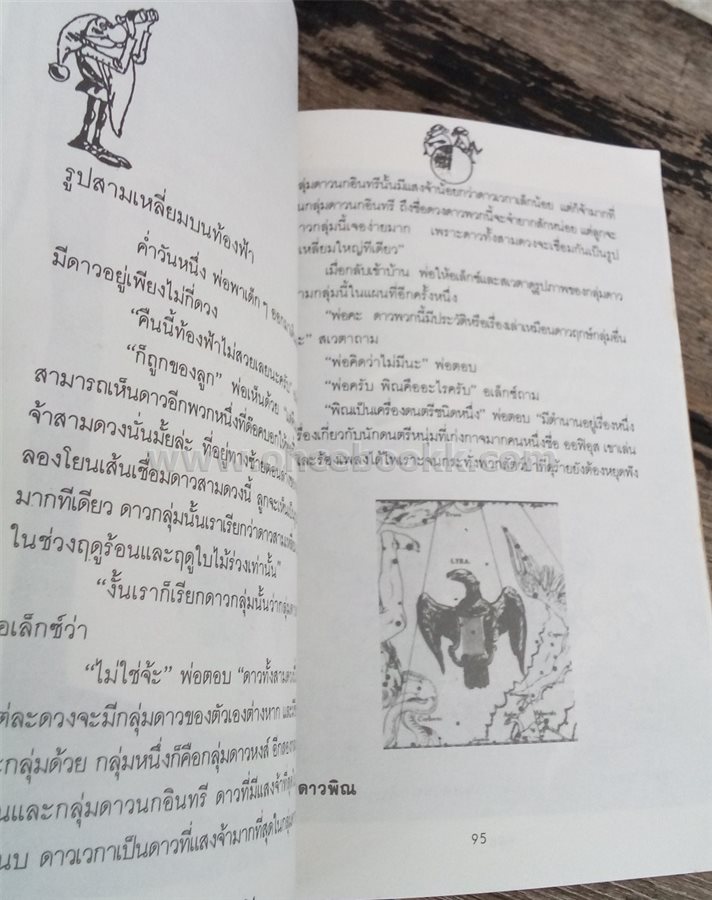 รูปสามเหลี่ยมบนท้องฟ้า
ค่ำวันหนึ่ง พ่อพาเด็กๆ
มีดาวอยู่เพียงไม่กี่ดวง
“คืนนี้ท้องฟ้าไม่สวยเลยนะครับ”
“ก็ถูกของลูก” พ่อเห็นด้วย
สามารถเห็นดาวอีกพวกหนึ่งที่
จ้าสามดวงนั่นมั้ยล่ะ ที่อยู่ทาง
ลองโยนเส้นเชื่อมดาวสามดวงนี้ ลูกจะเห็น
มากทีเดียว ดาวกลุ่มนั้นเราเรียกว่าดาว
ในช่วงฤดูร้อนและฤดูใบไม้ร่วงเท่านั้น”
“งั้นเราก็เรียกดาวกลุ่มนั้นว่ากลุ่ม
อเล็กซ์ว่า
“ไม่ใช่จ้ะ” พ่อตอบ “ดาวทั้งสามดวง
ต่ละดวงจะมีกลุ่มดาวของตัวเองต่างหาก
ะกลุ่มด้วย กลุ่มหนึ่งก็คือกลุ่มดาวหงส์
นและกลุ่มดาวนกอินทรี ดาวที่มีแสงจ้า
นบ ดาวเวกาเป็นดาวที่แสงจ้ามากที่สุดใน
กลุ่มดาวนกอินทรีนั้นมีแสงจ้าน้อยกว่าดาวเวกาเล็กน้อย แต่ก็จ้ามากที่
นกลุ่มดาวนกอินทรี ถึงชื่อดวงดาวพวกนี้จะจำยากสักหน่อย แต่ลูกจะ
าวกลุ่มนี้เจอง่ายมาก เพราะดาวทั้งสามดวงจะเชื่อมกันเป็นรูป
เหลี่ยมใหญ่ทีเดียว”
เมื่อกลับเข้าบ้าน พ่อให้อเล็กซ์และสเวตาดูรูปภาพของกลุ่มดาว
ามกลุ่มนี้ในแผนที่อีกครั้งหนึ่ง
“พ่อคะ ดาวพวกนี้มีประวัติหรือเรื่องเล่าเหมือนดาวฤกษ์กลุ่มอื่น
ะ” สเวตาถาม
“พ่อคิดว่าไม่มีนะ” พ่อตอบ
“พ่อครับ พิณคืออะไรครับ” อเล็กซ์ถาม
“พิณเป็นเครื่องดนตรีชนิดหนึ่ง” พ่อตอบ “มีตำนานอยู่เรื่องหนึ่ง
รื่องเกี่ยวกับนักดนตรีหนุ่มที่เก่งกาจมากคนหนึ่งชื่อ ออฟิอุส เขาเล่น
และร้องเพลงได้ไพเราะจนกระทั่งพวกสัตว์ป่าที่ดุร้ายยังต้องหยุดฟัง
LYRA.
ดาวพิณ
95